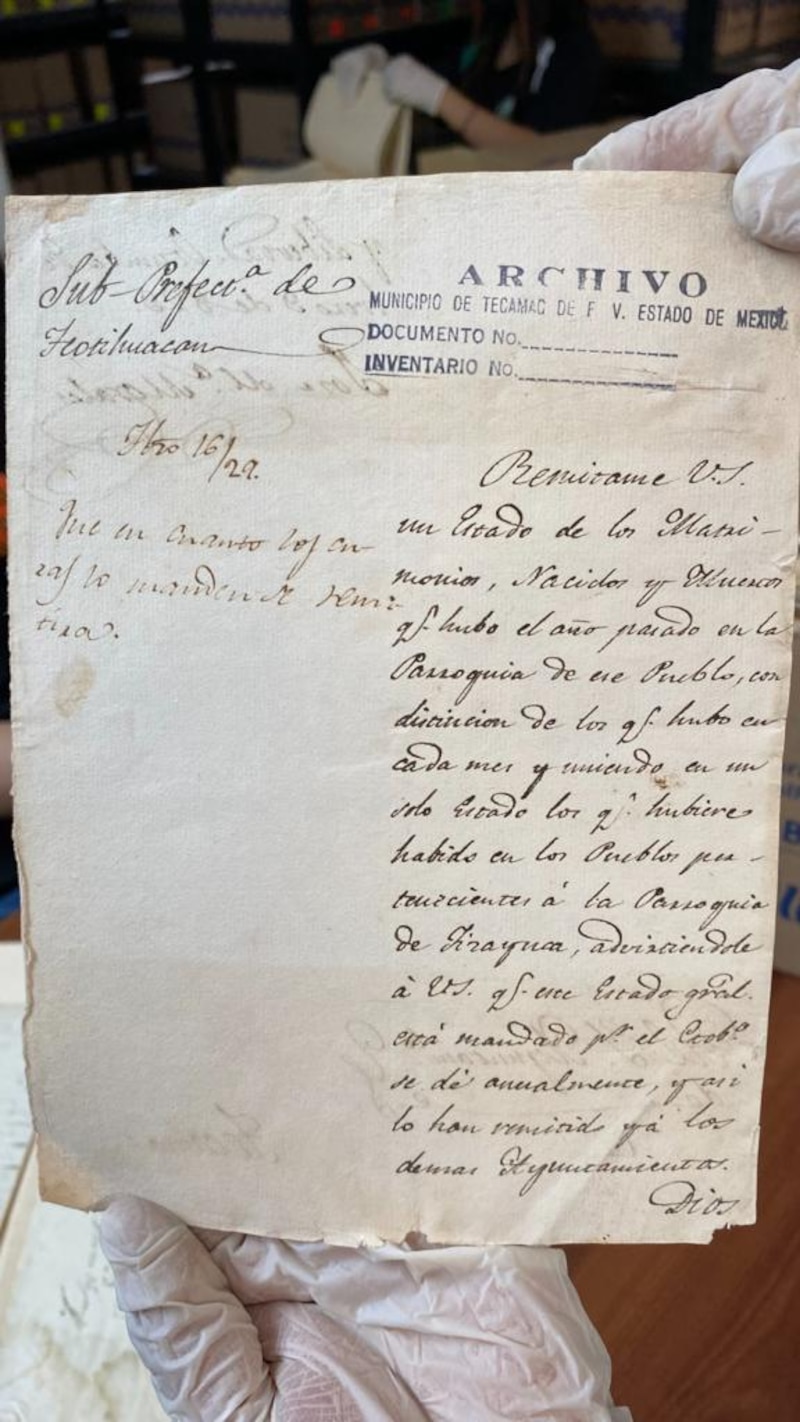 Sub-Prefect.ª de
Teotihuacan
ARCHIVO
MUNICIPIO DE TECAMAC DE F V. ESTADO DE MEXICO
DOCUMENTO No.
INVENTARIO No.
16/29.
Que en cuanto los cu-
ras lo manden se remi-
tira.
Remitame V.S.
un Estado de los Matri-
monios, Nacidos y Muertos
q.e hubo el año pasado en la
Parroquia de ese Pueblo, con
distincion de los q.e hubo en
cada mes y uniendo en un
solo Estado los q.e hubiere
habido en los Pueblos per-
tenecientes á la Parroquia
de Tizayuca, advirtiendole
à VS. q.e este Estado gral.
está mandado p.r el Gob.º
se dé anualmente, y asi
lo han remitido yá los
demas Ayuntamientos.
Dios